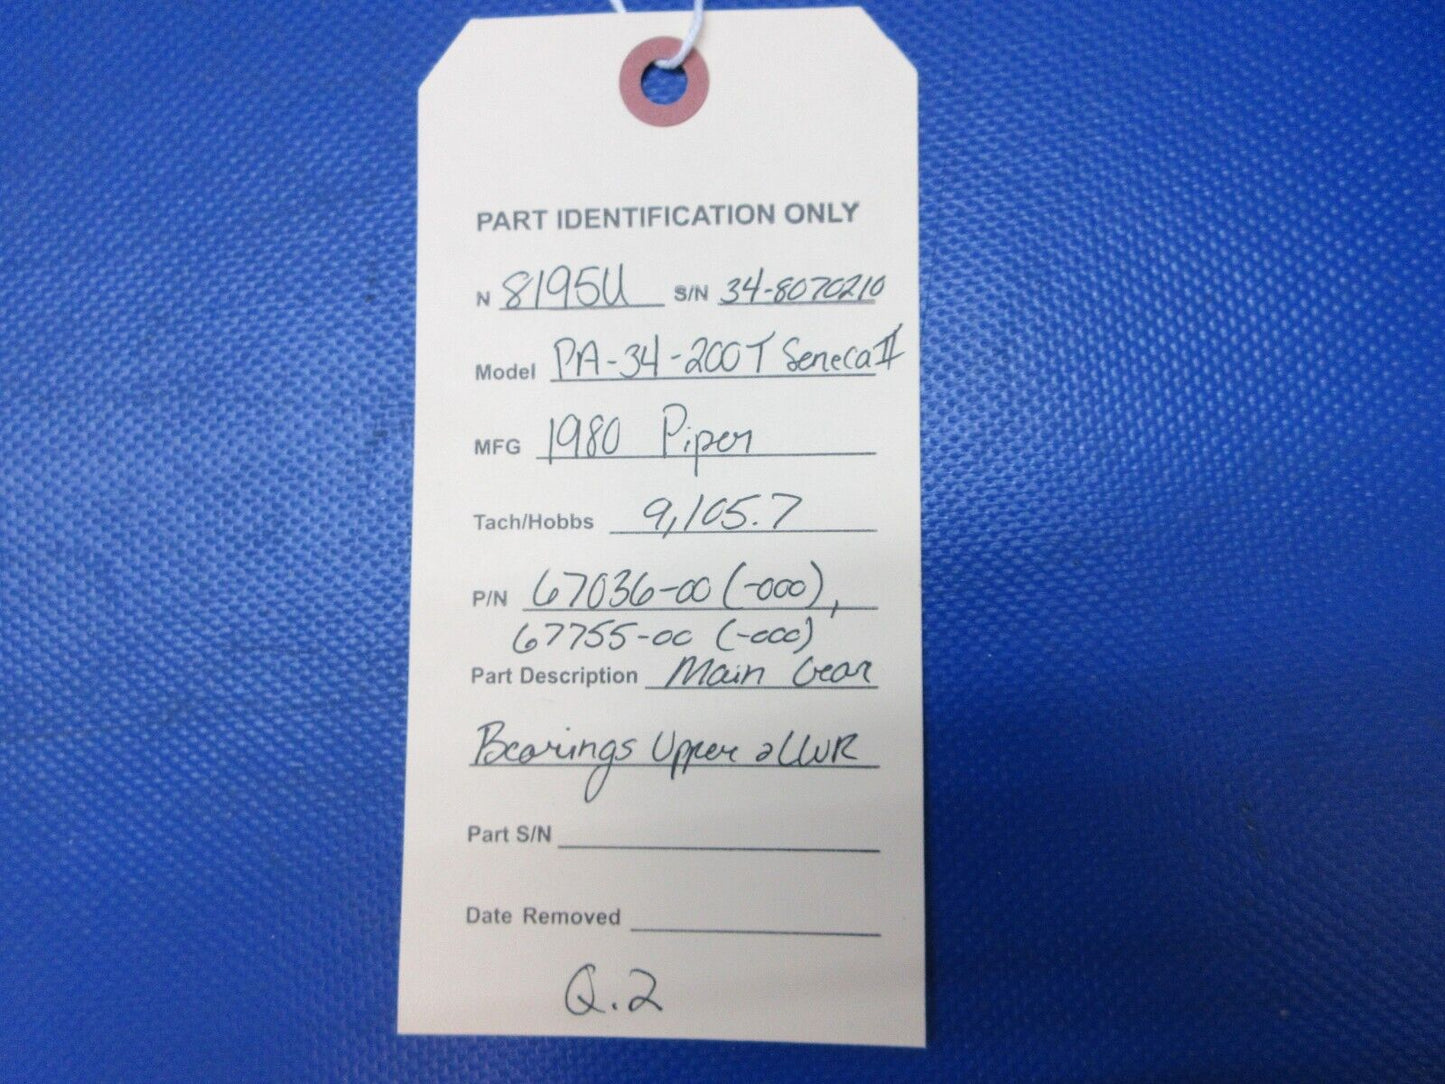 PART IDENTIFICATION ONLY
N 8195U S/N 34-8070210
Model PA-34-200T Seneca II
MFG 1980 Piper
Tach/Hobbs 9,105.7
P/N 67036-00 (-000),
67755-00 (-000)
Part Description Main Gear
Bearings Upper & LWR
Part S/N
Date Removed
Q.2